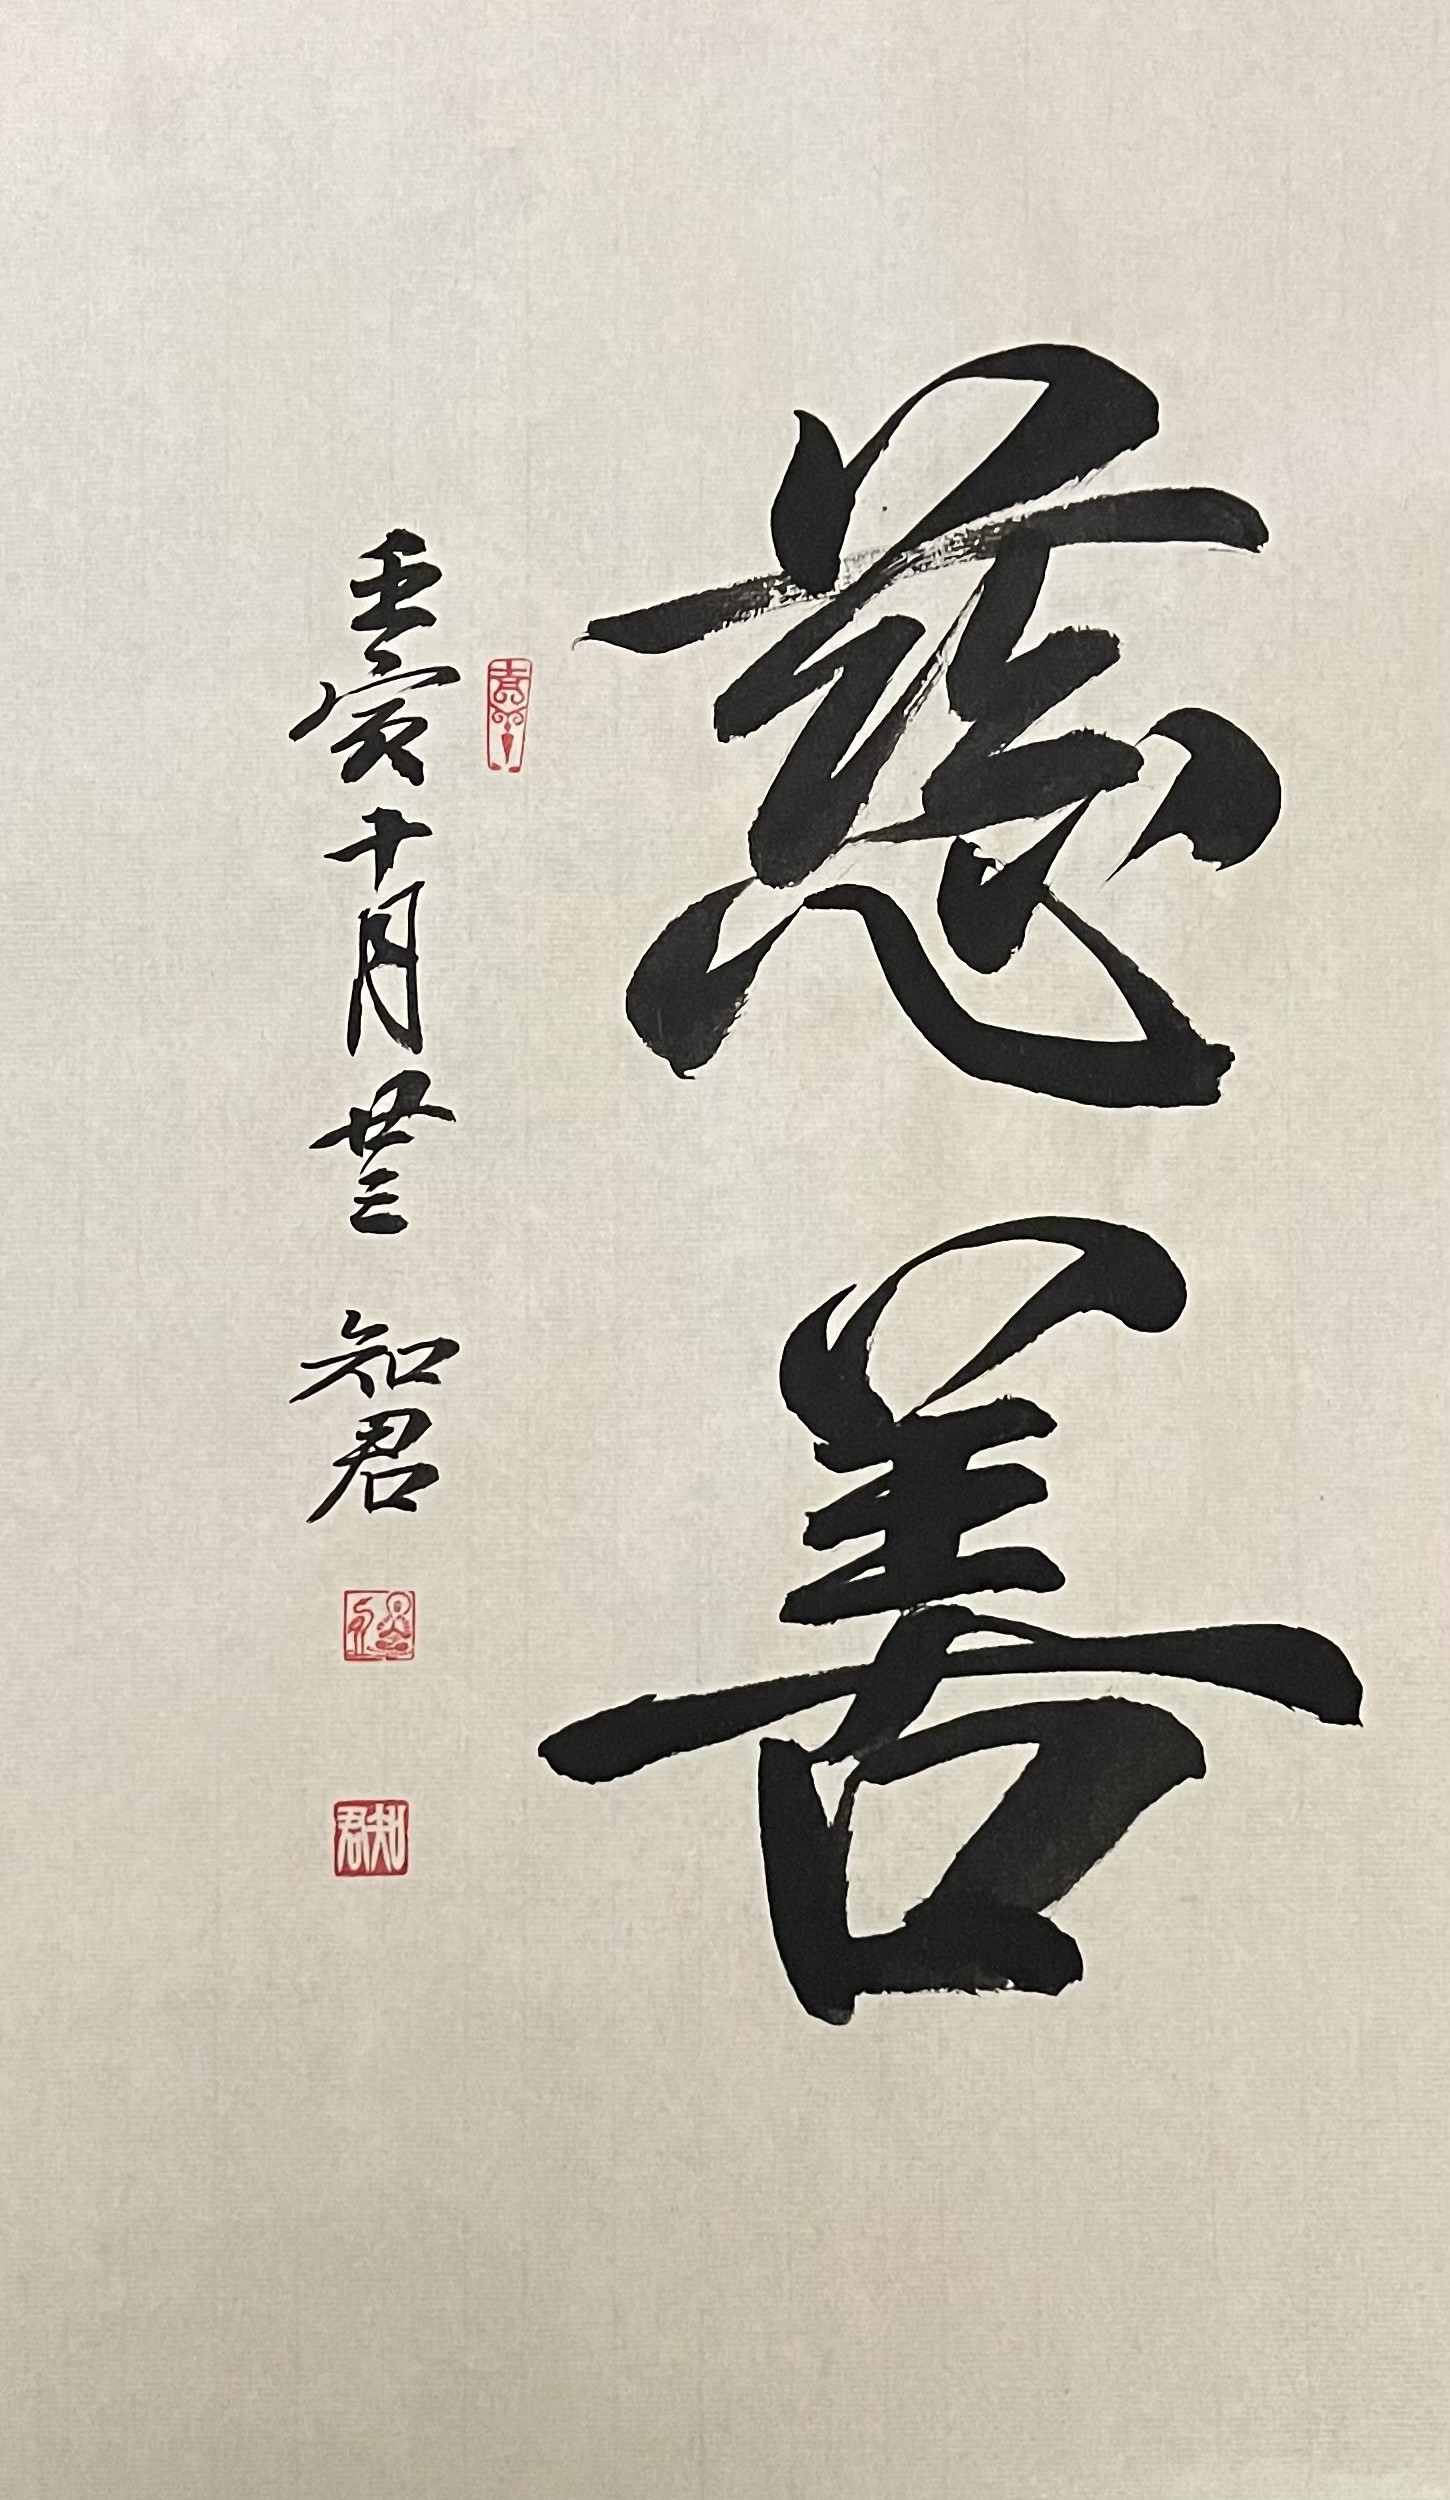 慈善
壬寅十月廿三 知君
知君